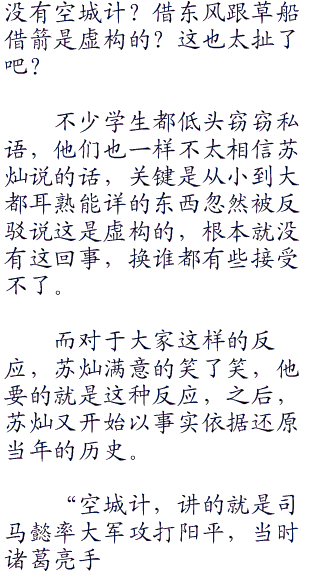 没有空城计？借东风跟草船
借箭是虚构的？这也太扯了
吧？
不少学生都低头窃窃私
语，他们也一样不太相信苏
灿说的话，关键是从小到大
都耳熟能详的东西忽然被反
驳说这是虚构的，根本就没
有这回事，换谁都有些接受
不了。
而对于大家这样的反
应，苏灿满意的笑了笑，他
要的就是这种反应，之后，
苏灿又开始以事实依据还原
当年的历史。
“空城计，讲的就是司
马懿率大军攻打阳平，当时
诸葛亮手